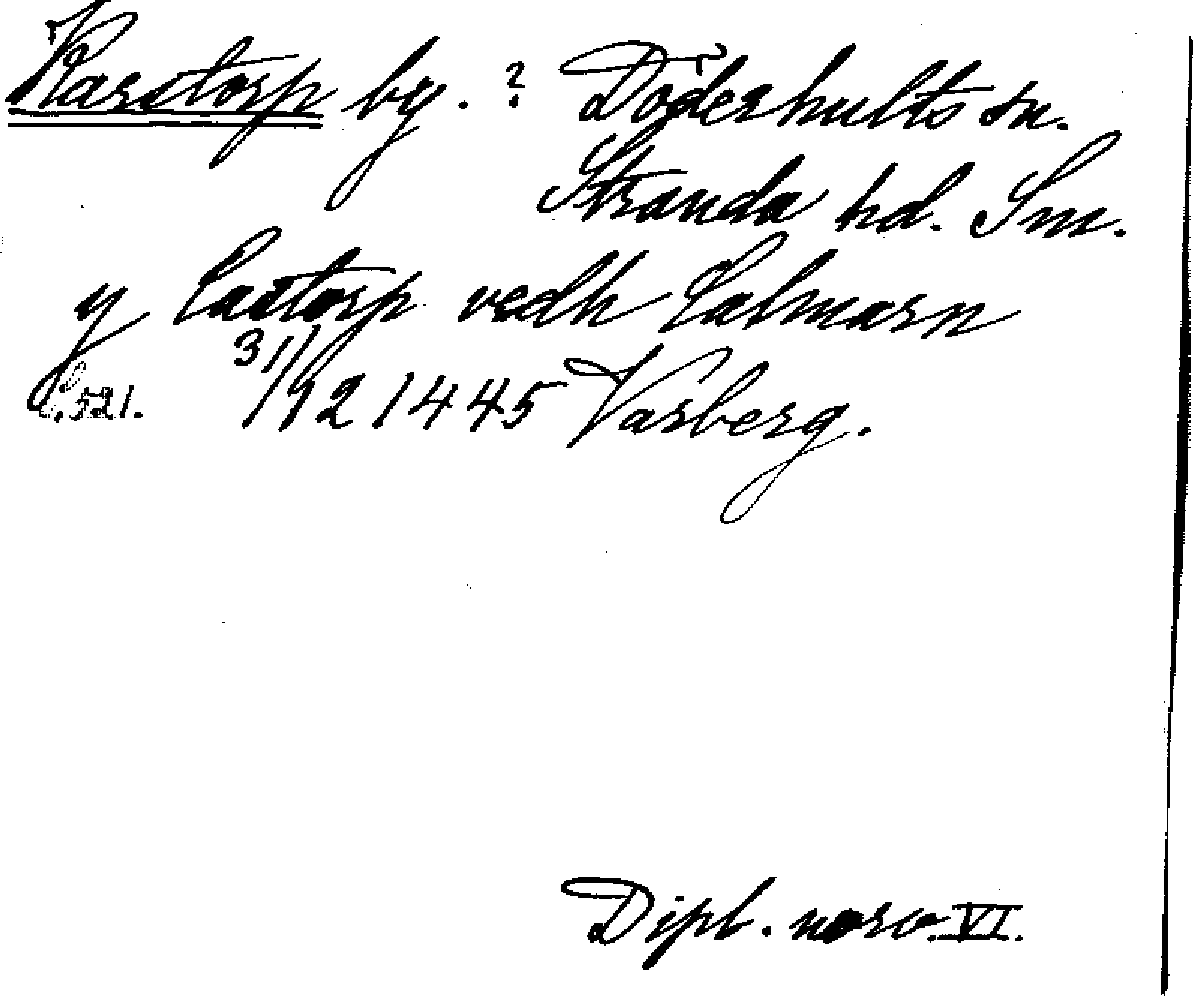 Karstorp by. ? Döderhults sn.
Stranda hd. Sm.
y Castorp vedh Calmarn
s. 521. 31/12 1445 Varberg.
Dipl. norv. VI.